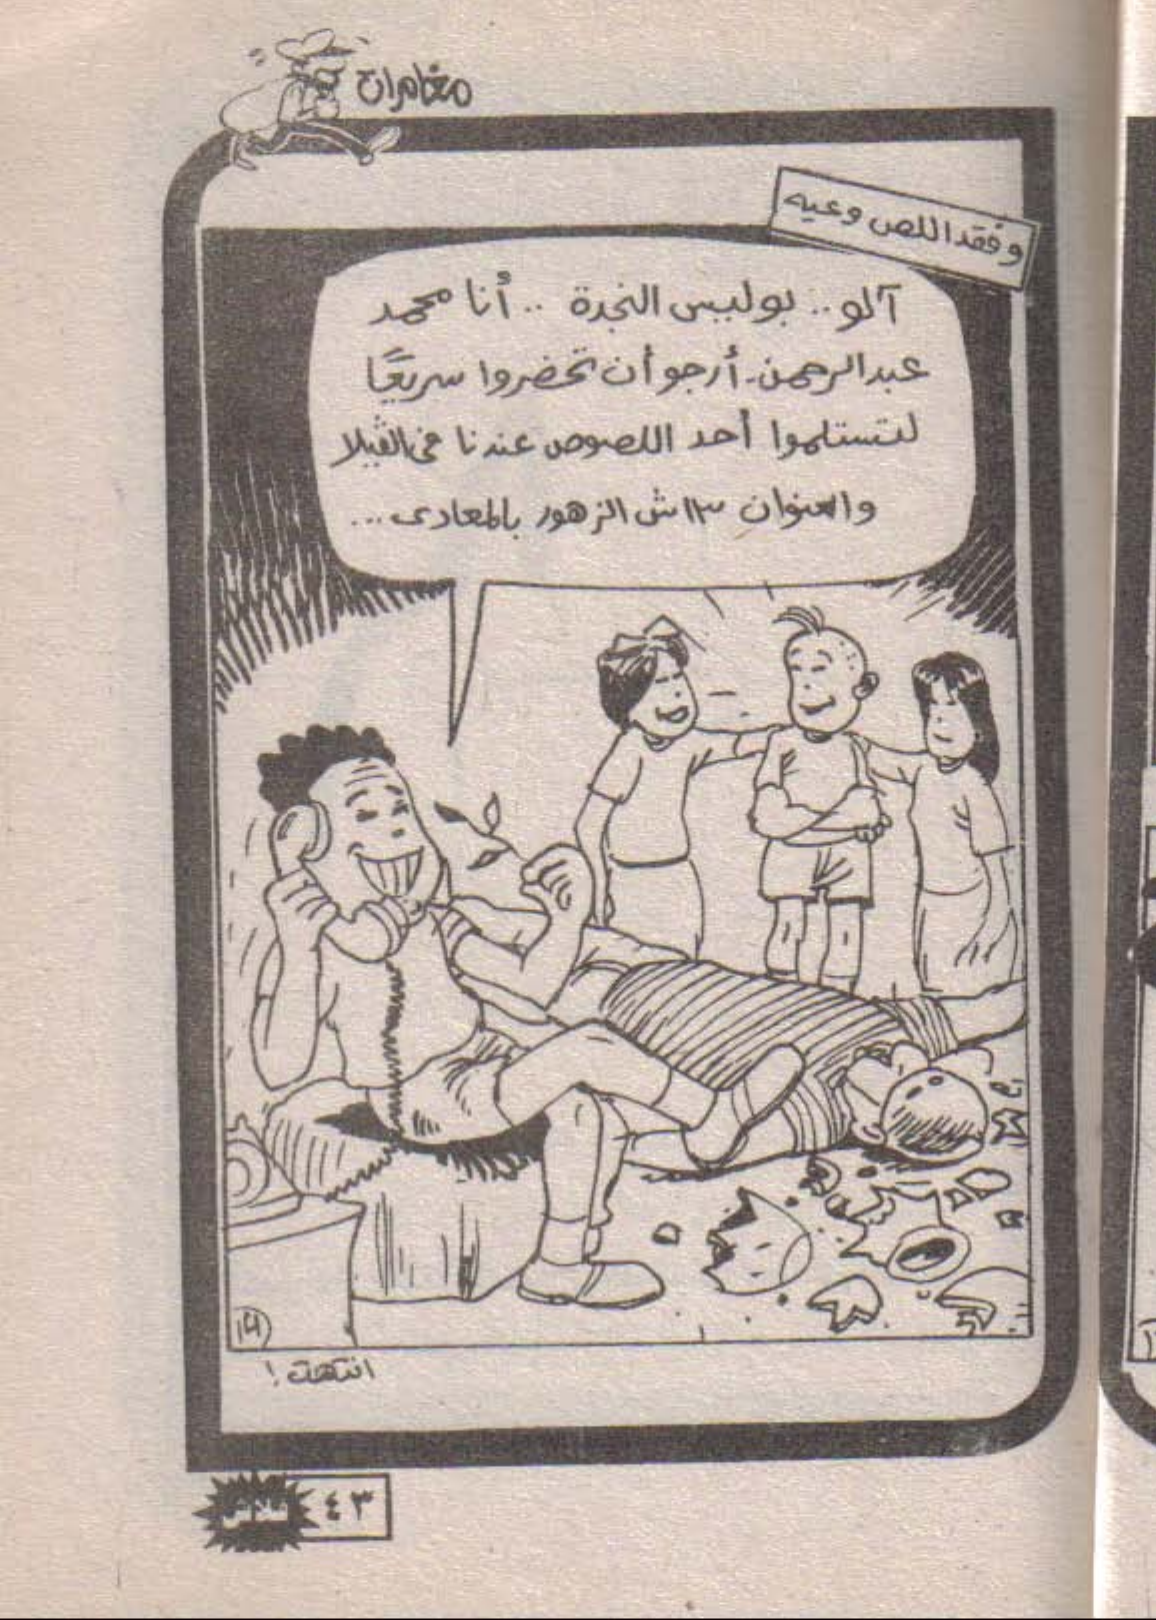 مغامرات
وفقد اللص وعيه
آلو .. بوليس النجدة .. أنا محمد
عبد الرحمن. أرجو أن تحضروا سريعًا
لتستلموا أحد اللصوص عندنا في الڤيلا
والعنوان ١٣ ش الزهور بالمعادى ...
انتهت !
٤٣
فلاش